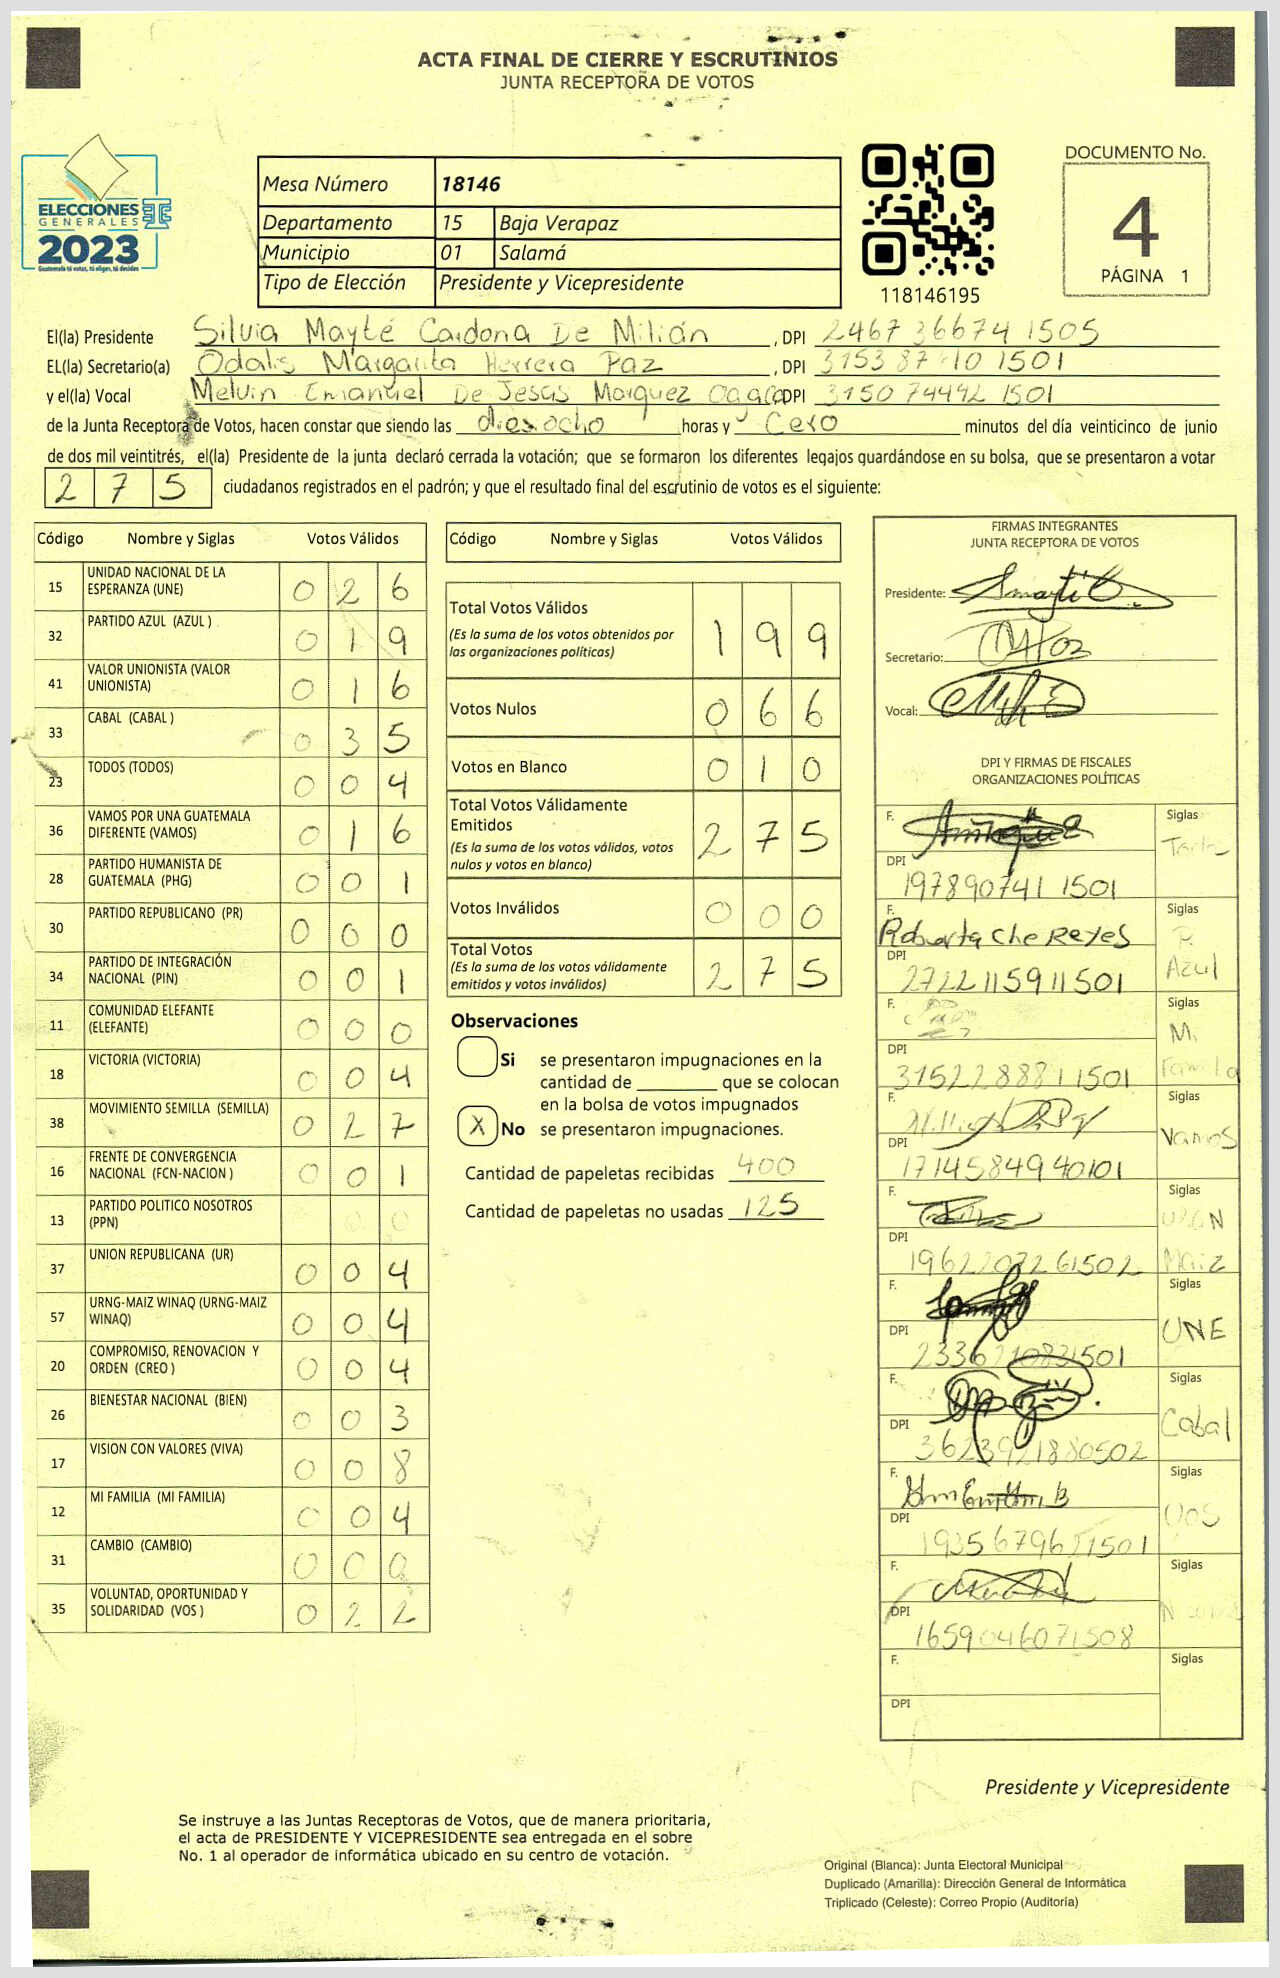 ACTA FINAL DE CIERRE Y ESCRUTINIOS
JUNTA RECEPTORA DE VOTOS
ELECCIONES
GENERALES
2023
Guatemala tú votas, tú eliges, tú decides
Mesa Número 18146
Departamento 15 Baja Verapaz
Municipio 01 Salamá
Tipo de Elección Presidente y Vicepresidente
118146195
DOCUMENTO No.
4
PÁGINA 1
El(la) Presidente Silvia Mayté Cardona De Milián , DPI 2467 36674 1505
EL(la) Secretario(a) Odalis Margarita Herrera Paz , DPI 3153 87 10 1501
y el(la) Vocal Melvin Emanuel De Jesús Marquez DPI 3150 74492 1501
de la Junta Receptora de Votos, hacen constar que siendo las diesocho horas y Cero minutos del día veinticinco de junio
de dos mil veintitrés, el(la) Presidente de la junta declaró cerrada la votación; que se formaron los diferentes legajos guardándose en su bolsa, que se presentaron a votar
2 7 5 ciudadanos registrados en el padrón; y que el resultado final del escrutinio de votos es el siguiente:
Código Nombre y Siglas Votos Válidos
15 UNIDAD NACIONAL DE LA ESPERANZA (UNE) 0 2 6
32 PARTIDO AZUL (AZUL ) 0 1 9
41 VALOR UNIONISTA (VALOR UNIONISTA) 0 1 6
33 CABAL (CABAL ) 0 3 5
23 TODOS (TODOS) 0 0 4
36 VAMOS POR UNA GUATEMALA DIFERENTE (VAMOS) 0 1 6
28 PARTIDO HUMANISTA DE GUATEMALA (PHG) 0 0 1
30 PARTIDO REPUBLICANO (PR) 0 0 0
34 PARTIDO DE INTEGRACIÓN NACIONAL (PIN) 0 0 1
11 COMUNIDAD ELEFANTE (ELEFANTE) 0 0 0
18 VICTORIA (VICTORIA) 0 0 4
38 MOVIMIENTO SEMILLA (SEMILLA) 0 2 7
16 FRENTE DE CONVERGENCIA NACIONAL (FCN-NACION ) 0 0 1
13 PARTIDO POLITICO NOSOTROS (PPN) 0 0
37 UNION REPUBLICANA (UR) 0 0 4
57 URNG-MAIZ WINAQ (URNG-MAIZ WINAQ) 0 0 4
20 COMPROMISO, RENOVACION Y ORDEN (CREO ) 0 0 4
26 BIENESTAR NACIONAL (BIEN) 0 0 3
17 VISION CON VALORES (VIVA) 0 0 8
12 MI FAMILIA (MI FAMILIA) 0 0 4
31 CAMBIO (CAMBIO) 0 0 0
35 VOLUNTAD, OPORTUNIDAD Y SOLIDARIDAD (VOS ) 0 2 2
Código Nombre y Siglas Votos Válidos
Total Votos Válidos 1 9 9
(Es la suma de los votos obtenidos por
las organizaciones políticas)
Votos Nulos 0 6 6
Votos en Blanco 0 1 0
Total Votos Válidamente
Emitidos 2 7 5
(Es la suma de los votos válidos, votos
nulos y votos en blanco)
Votos Inválidos 0 0 0
Total Votos 2 7 5
(Es la suma de los votos válidamente
emitidos y votos inválidos)
Observaciones
Si se presentaron impugnaciones en la
cantidad de ________ que se colocan
en la bolsa de votos impugnados
X No se presentaron impugnaciones.
Cantidad de papeletas recibidas 400
Cantidad de papeletas no usadas 125
FIRMAS INTEGRANTES
JUNTA RECEPTORA DE VOTOS
Presidente:
Secretario:
Vocal:
DPI Y FIRMAS DE FISCALES
ORGANIZACIONES POLÍTICAS
F. Siglas
DPI 197890741 1501
F. Roberta Che Reyes Siglas P. Azul
DPI 2722115911501
F. Siglas M. Familia
DPI 3152288811501
F. Siglas Vamos
DPI 1714584940101
F. Siglas Maiz
DPI 1962207261502
F. Siglas UNE
DPI 2336210831501
F. Siglas Cabal
DPI 3623921880502
F. Siglas VOS
DPI
F. Siglas
DPI 1659046071508
F. Siglas
DPI
Presidente y Vicepresidente
Se instruye a las Juntas Receptoras de Votos, que de manera prioritaria,
el acta de PRESIDENTE Y VICEPRESIDENTE sea entregada en el sobre
No. 1 al operador de informática ubicado en su centro de votación.
Original (Blanca): Junta Electoral Municipal
Duplicado (Amarilla): Dirección General de Informática
Triplicado (Celeste): Correo Propio (Auditoría)